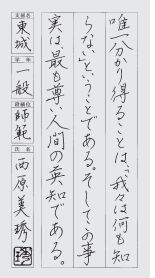 唯一分かり得ることは、「我々は何も知
らない」ということである。そして、この事
実は、最も尊い人間の英知である。
支部名
東城
学年
一般
段級位
師範
氏名
西原美琇